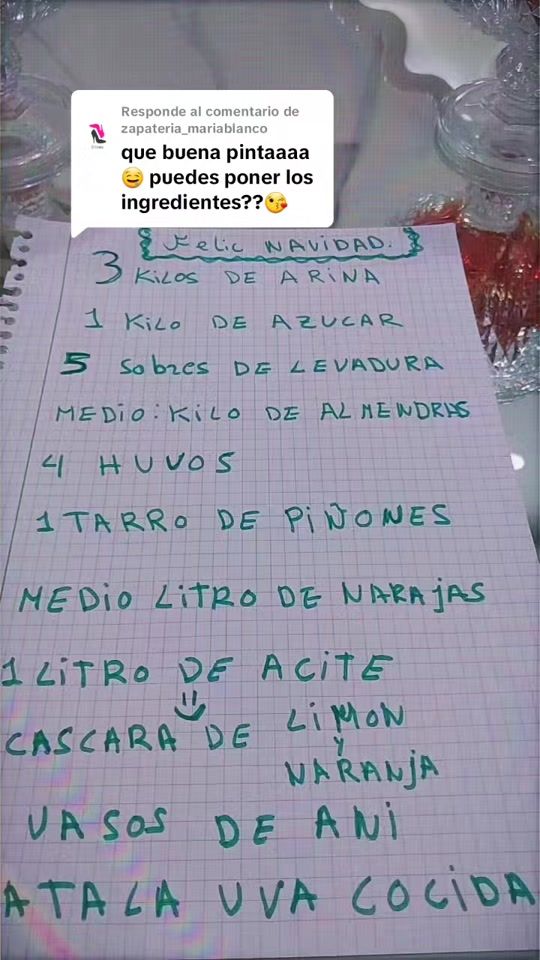 Responde al comentario de
zapateria_mariablanco
que buena pintaaaa
😋 puedes poner los
ingredientes??😘
Felic NAVIDAD.
3 KILOS DE ARINA
1 KILO DE AZUCAR
5 Sobres DE LEVADURA
MEDIO: KILO DE ALMENDRAS
4 HUVOS
1 TARRO DE PIÑONES
MEDIO LITRO DE NARAJAS
1 LITRO DE ACITE
CASCARA DE LIMON
Y
NARANJA
VASOS DE ANI
ATALA UVA COCIDA